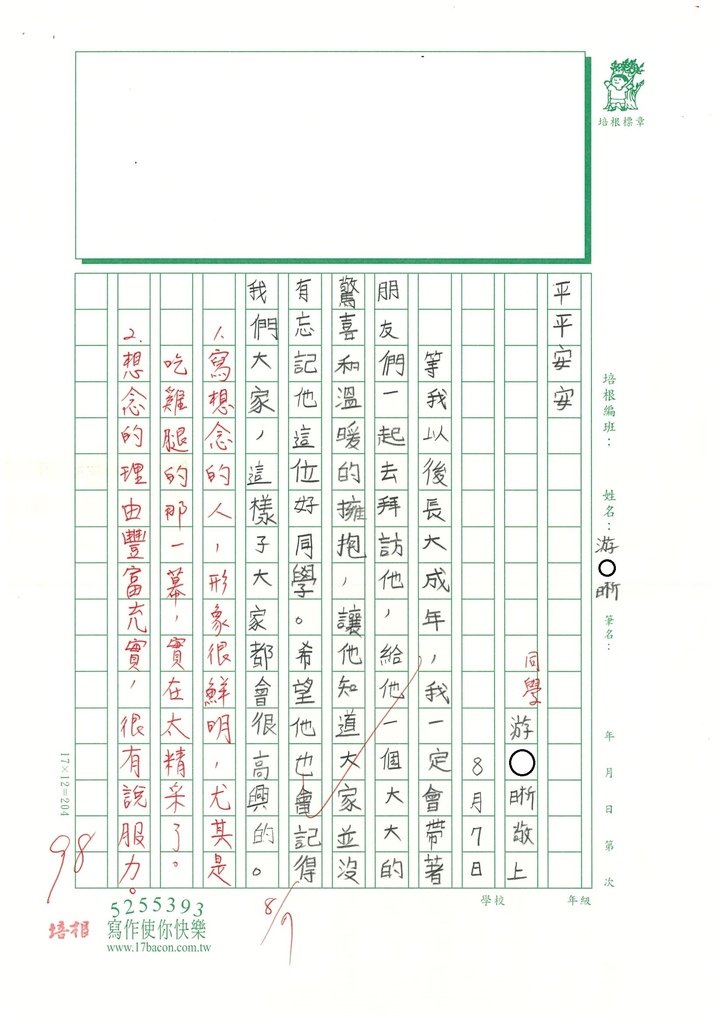 培根標章
培根編班：
姓名：游○晰
筆名：
年 月 日 第 次
學校
年級
平平安安
同學
游○晰敬上
8月7日
等我以後長大成年，我一定會帶著
朋友們一起去拜訪他，給他一個大大的
驚喜和溫暖的擁抱，讓他知道大家並沒
有忘記他這位好同學。希望他也會記得
我們大家，這樣子大家都會很高興的。
1.寫想念的人，形象很鮮明，尤其是
吃雞腿的那一幕，實在太精采了。
2.想念的理由豐富充實，很有說服力。
98
8/7
17×12=204
培根
5255393
寫作使你快樂
www.17bacon.com.tw